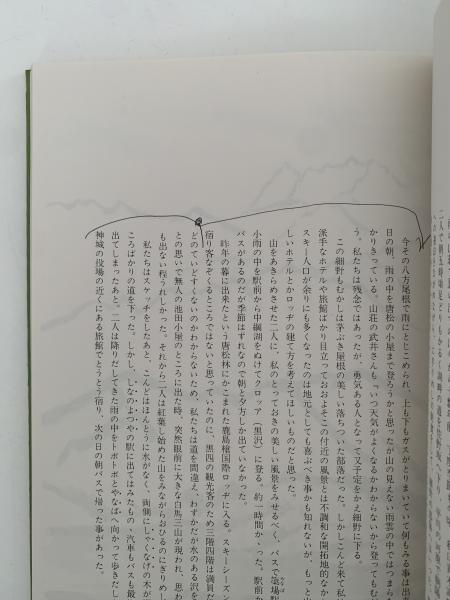 今その八方尾根で雨にとじこめられ、上も下もガスがとりまいていて何もみる事は出
日の朝、雨の中を唐松の小屋まで登ろうかと思ったが山の見えない雨雲の中ではつまら
かりきっている。山荘の武井さんも「いつ天気がよくなるかわからないから登ってもむ
う。私たちは残念ではあったが、勇気ある人となって又予定をかえ細野に下る
この細野もむかしは茅ぶき屋根の美しい落ちついた部落だった。しかしこんど来て私
派手なホテルや旅館ばかり目立っておおよそこの付近の風景とは不調和な開拓地的なか
スキー人口が余りにも多くなったのは地元としても喜ぶべき事かも知れないが、もっと
しいホテルとかロッヂの建て方を考えてほしいものだと思った。
山をあきらめさせた二人に、私のとっておきの美しい風景をみせるべく、バスで
小雨の中を駅前から中綱湖をぬけてクロッア（黒沢）に登る。約一時間かゝった。駅前か
バスがあるのだが季節はずれなので朝と夕方しか出ていなかった。
昨年の暮に出来たという唐松林にかこまれた鹿島槍国際ロッヂに入る。スキーシーズン
宿り客なぞくるところではないと思っていたのに、黒四の観光客のため三階四階は満員だ
どのていどすくないのかわからないため、私たちは道を間違え、わずかだが水のある沢を
との思いで無人の池田小屋のところに出た時、突然眼前に大きな白馬三山が現われ、思わ
も出ない程うれしかった。それから二人は紅葉し始めた山をみながらおひるのにぎりめし
私たちはスケッチをしたあと、こんどはほんとうに水がなく、両側にしゃくなげの木が
ころばかりの道を下った。しかし、しなのよつやの駅に出てはみたもの、汽車もバスも最
出てしまったあと。二人は降りだしてきた雨の中をトボトボとやなばへ向かって歩きだし
神城の役場の近くにある旅館でとうとう宿り、次の日の朝バスで帰った事があった。